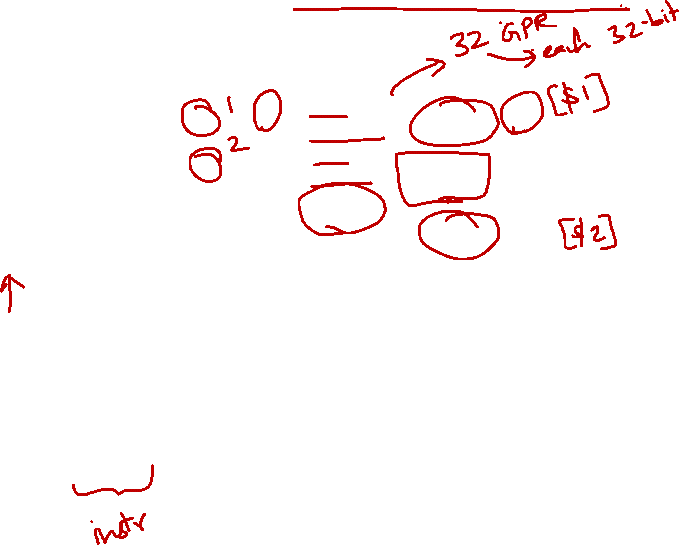 32 GPR
each 32-bit
1
[$1]
2
[$2]
instr